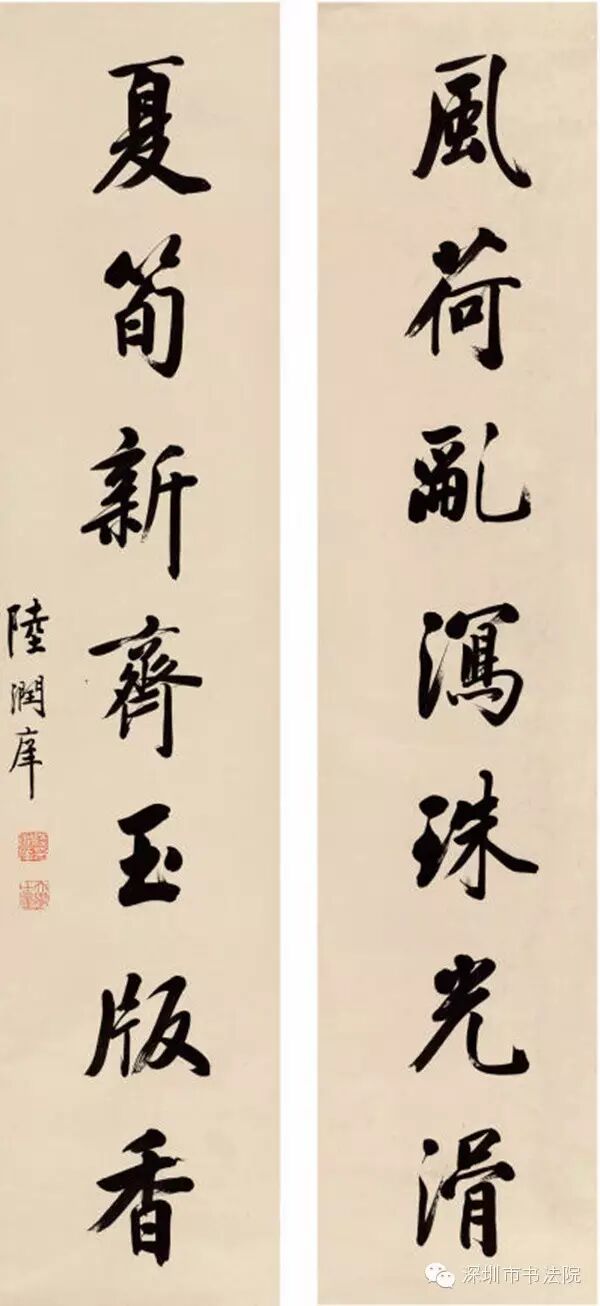 風荷亂瀉珠光滑
夏筍新齊玉版香
陸潤庠
深圳市书法院